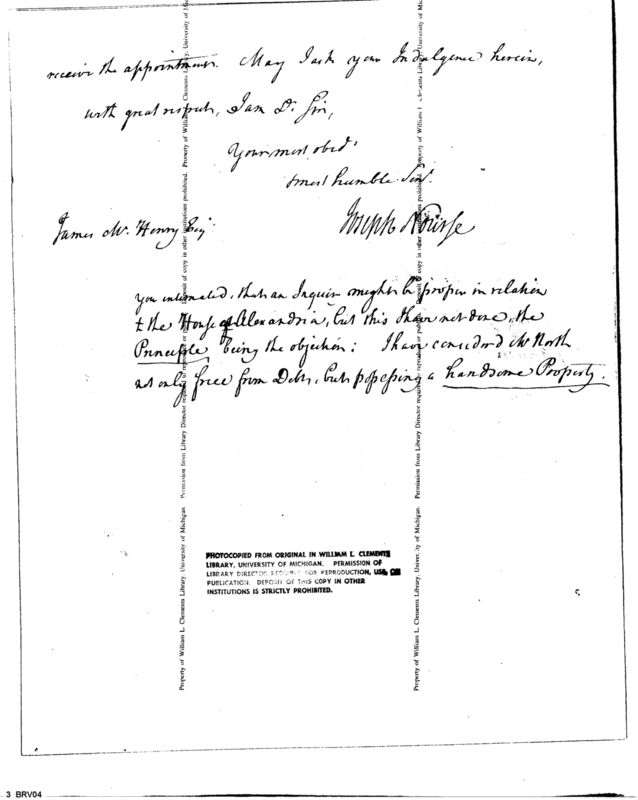 receive the appointment. May I ask your Indulgence herein,
with great respect, I am Dr. Sir,
Your most obedt
& most humble Servt.
Joseph Nourse
James Mc. Henry Esqr.
You intimated, that an Inquiry might be proper in relation
to the House of Alexandria, but this I have not done, the
Principle being the objection: I have considered Mr North
not only free from Debts, but possessing a handsome Property.
PHOTOCOPIED FROM ORIGINAL IN WILLIAM L. CLEMENTS
LIBRARY, UNIVERSITY OF MICHIGAN. PERMISSION OF
LIBRARY DIRECTOR REQUIRED FOR REPRODUCTION, USE OR
PUBLICATION. DEPOSIT OF THIS COPY IN OTHER
INSTITUTIONS IS STRICTLY PROHIBITED.
Property of William L. Clements Library, University of Michigan. Permission from Library Director required
deposit of copy in other institutions prohibited. Property of William L. Clements Library, University of
Property of William L. Clements Library, University of Michigan. Permission from Library Director required
deposit of copy in other institutions prohibited. Property of William L. Clements Library, University of
3 BRV04